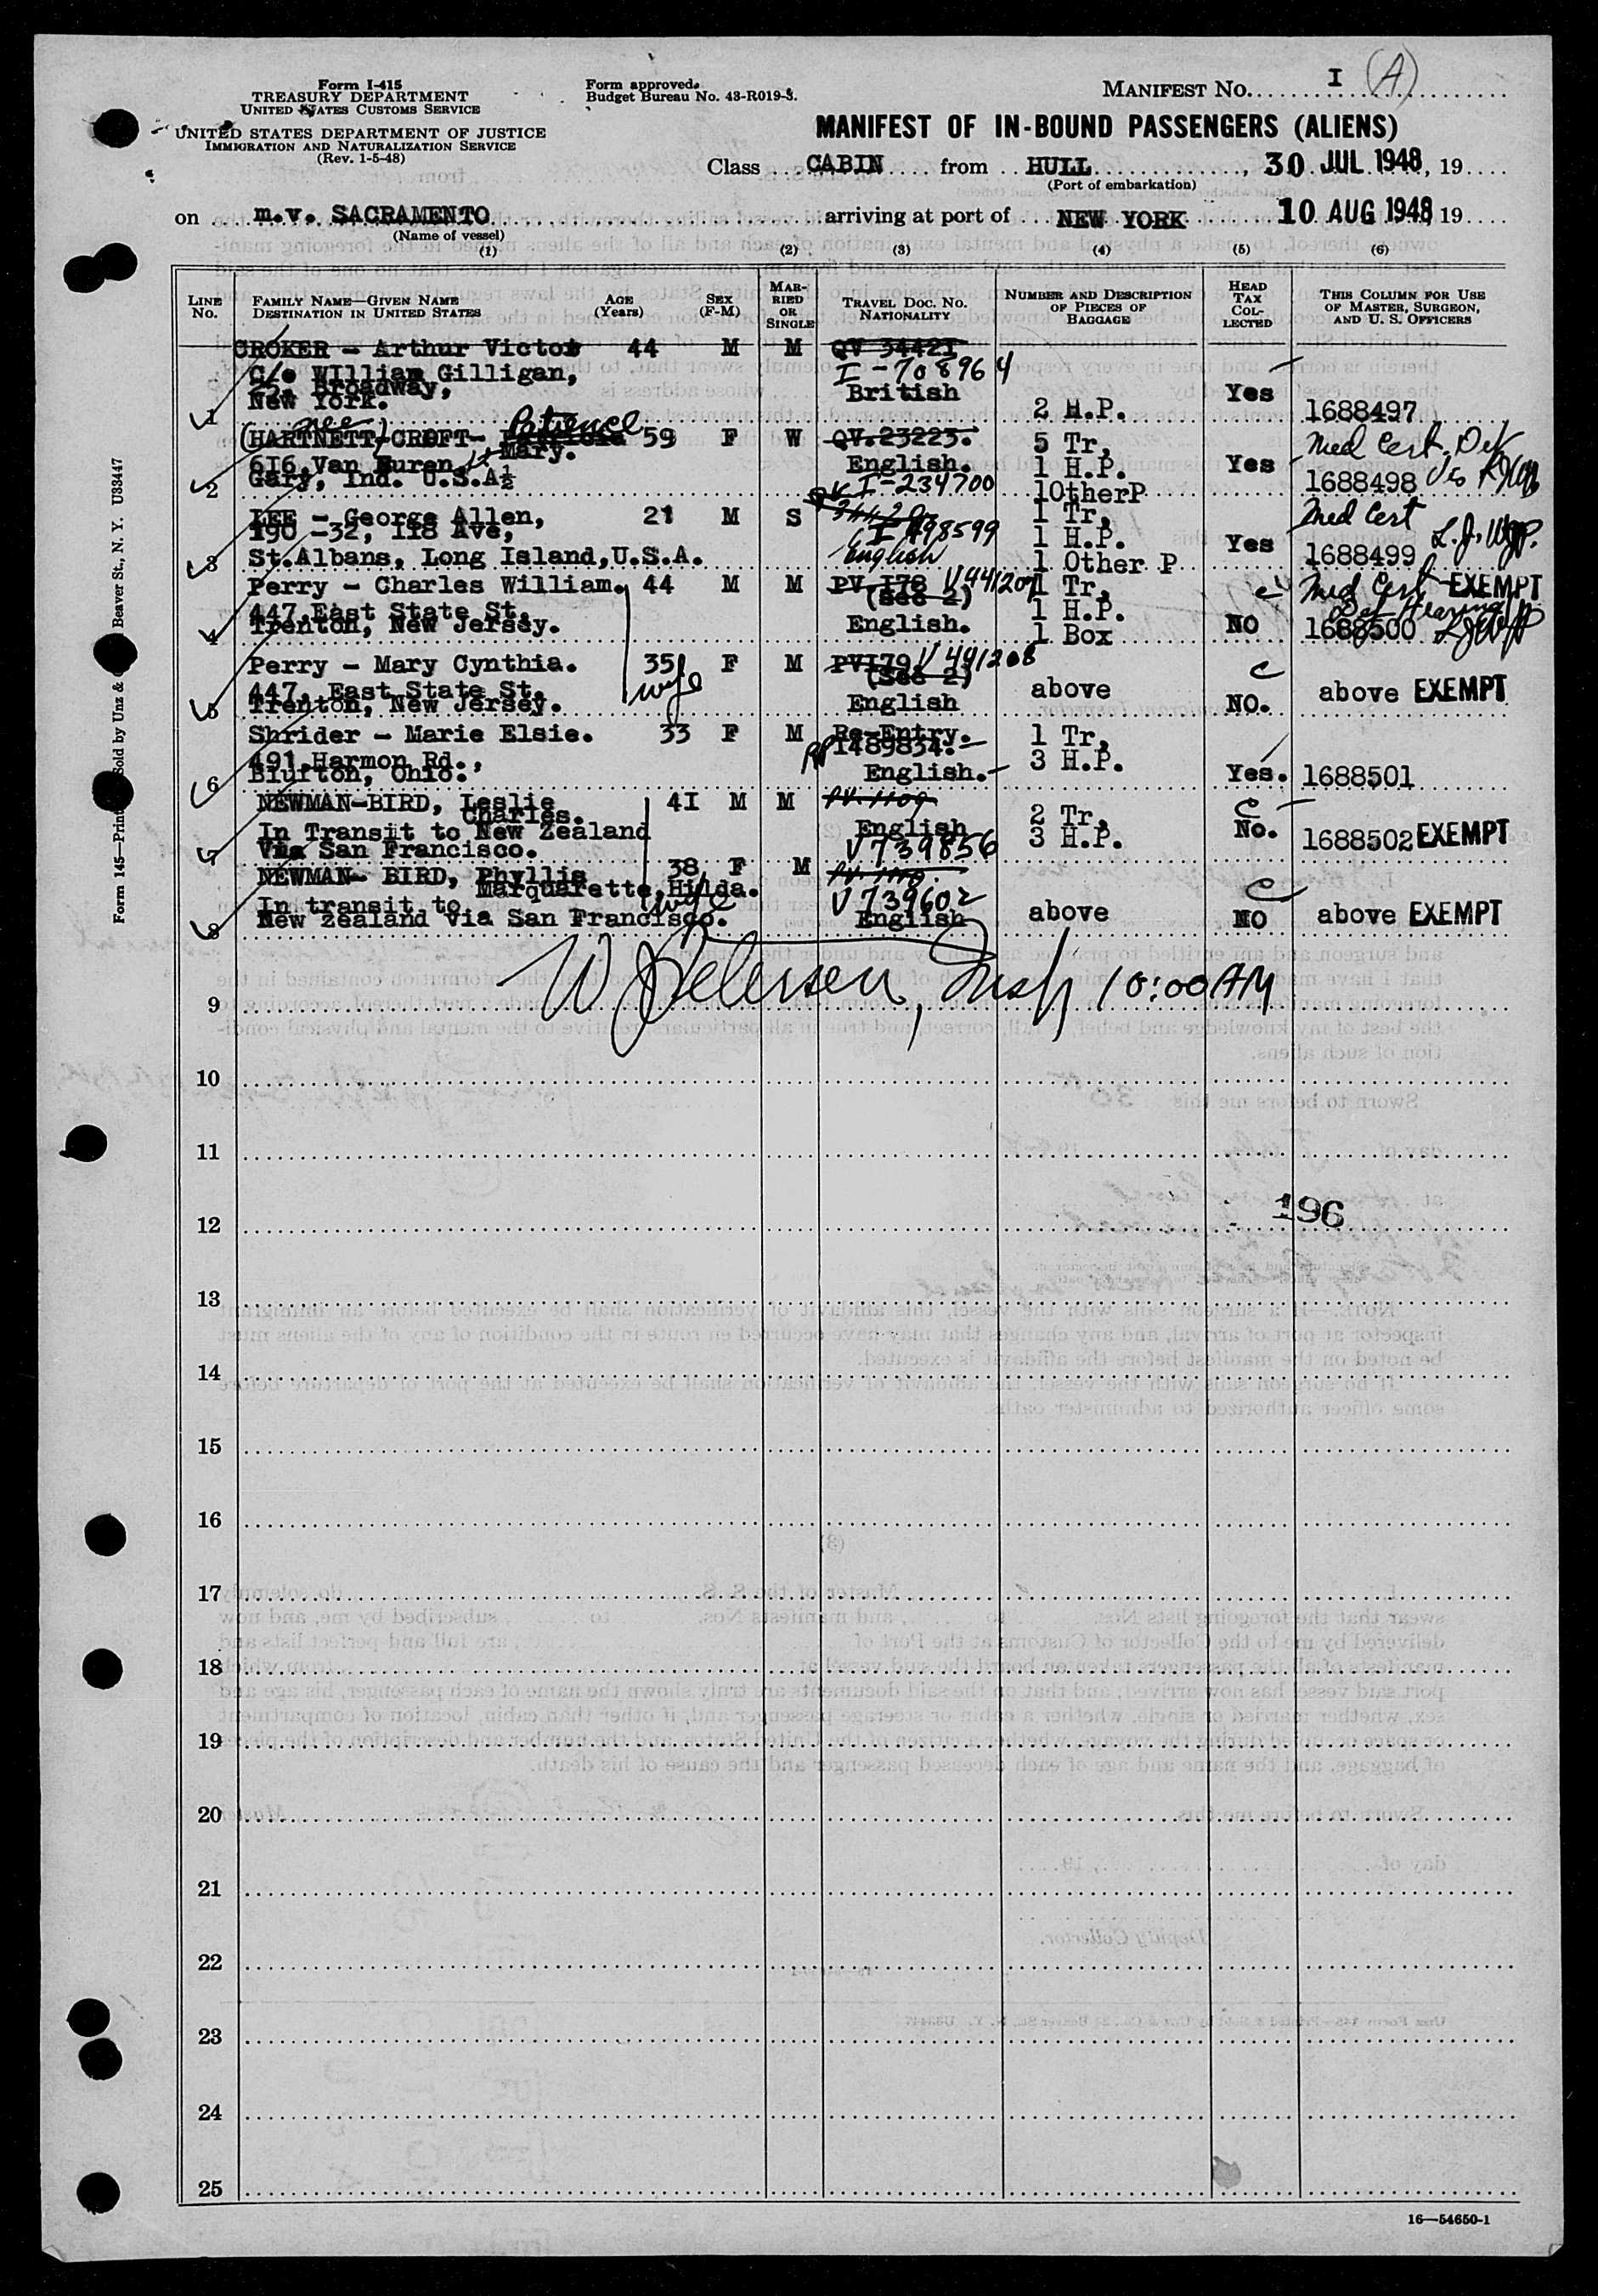 Form I-415
TREASURY DEPARTMENT
UNITED STATES CUSTOMS SERVICE
UNITED STATES DEPARTMENT OF JUSTICE
IMMIGRATION AND NATURALIZATION SERVICE
(Rev. 1-5-48)
Form approved.
Budget Bureau No. 43-R019-3.
MANIFEST NO. I (A)
MANIFEST OF IN-BOUND PASSENGERS (ALIENS)
Class CABIN from HULL, 30 JUL 1948, 19
(Port of embarkation)
on m.v. SACRAMENTO arriving at port of NEW YORK 10 AUG 1948, 19
(Name of vessel)
(1) (2) (3) (4) (5) (6)
LINE NO.
FAMILY NAME—GIVEN NAME
DESTINATION IN UNITED STATES
AGE (Years)
SEX (F-M)
MARRIED OR SINGLE
TRAVEL DOC. NO. NATIONALITY
NUMBER AND DESCRIPTION OF PIECES OF BAGGAGE
HEAD TAX COLLECTED
THIS COLUMN FOR USE OF MASTER, SURGEON, AND U. S. OFFICERS
CROKER - Arthur Victor 44 M M QV 34421
I-708964
C/o WIlliam Gilligan,
25, Broadway, British Yes
New York.
1 2 H.P. 1688497
nee Patience
(HARTNETT-CROFT- Mary. 59 F W QV.23223. 5 Tr, Med Cert.
616, Van Buren St English. 1 H.P. Yes
Gary, Ind. U.S.A½ QV I-234700 1OtherP 1688498
2
LEE - George Allen, 21 M S 1 Tr, Med Cert
190 -32, 118 Ave, I 498599 1 H.P. Yes
3 St.Albans, Long Island,U.S.A. English 1 Other P 1688499
Perry - Charles William. 44 M M PV.I78 V441207 1 Tr, Med Cert EXEMPT
(Sec 2) Hearing
447,East State St, 1 H.P.
4 Trenton, New Jersey. English. 1 Box NO 1688500
Perry - Mary Cynthia. 35 F M PVI79 V441208
wife (Sec 2)
447, East State St. above above EXEMPT
5 Trenton, New Jersey. English NO.
Shrider - Marie Elsie. 33 F M Re-Entry. 1 Tr,
RP I489834.
491,Harmon Rd., 3 H.P.
6 Blufton, Ohio. English. Yes. 1688501
NEWMAN-BIRD, Leslie 41 M M PV.1109
Charles. 2 Tr,
In Transit to New Zealand English 3 H.P. No. 1688502 EXEMPT
7 Via San Francisco. V739856
NEWMAN- BIRD, Phyllis 38, F M
Marquarette, Hilda. wife
In transit to V739602
8 New Zealand via San Francisco. English above NO above EXEMPT
W J Petersen, Insp 10:00 AM
9
10
11
12
196
13
14
15
16
17
18
19
20
21
22
23
24
25
16—54650-1
Beaver St., N. Y. U33447